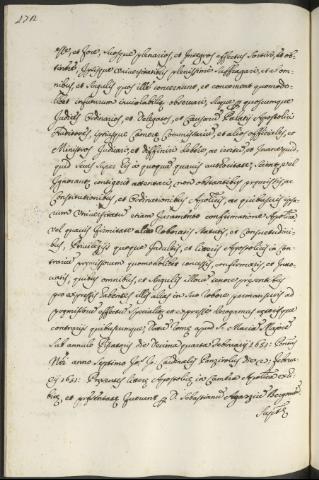 2712
esse, et fore, suosque plenarios, et integros effectus sortiri, et ob-
tinere, ipsisque Universitatibus plenissime suffragari, et ab om-
nibus, et singulis quos illud concernunt, et concernent quomodo-
libet in futurum inviolabiliter observari, sicque per quoscumque
Judices Ordinarios, et Delegatos, et Causarum Palatii Apostolici
Auditores, ipsiusque Camerae Commissarios, et alios officiales, et
Ministros Judicari, et diffiniri debere, ac irritum, et Inane quid-
quid secus super his a quoquam quavis auctoritate, scienter, vel
Ignoranter contigerit attentari, non obstantibus premissis, ac
Constitutionibus, et Ordinationibus Apostolicis, ac quibusvis ipsa-
rum Universitatum etiam Juramento confirmatione Apostolica
vel quavis firmitate alia roboratis statutis, et Consuetudini-
bus, Privilegiis quoque Indultis, et literis Apostolicis in con-
trarium premissorum quomodolibet concessis, confirmatis, et Inno-
vatis, quibus omnibus, et singulis illorum tenores presentibus
pro expressis habentes, illis alias in suo robore permansuris ad
premissorum effectum specialiter, et expresse derogamus ceterisque
contrariis quibuscumque. Datum Romae apud S. Mariam Maiorem
sub annulo Piscatoris die Decima quarta Februarii 1651: Pontus
Nri anno septimo
Cardinalis Panzirolus Die 23: Febru-
arii 1651: Presentes literae Apostolicae in Camera Apostolica
et presentatae fuerunt D. Sebastianum